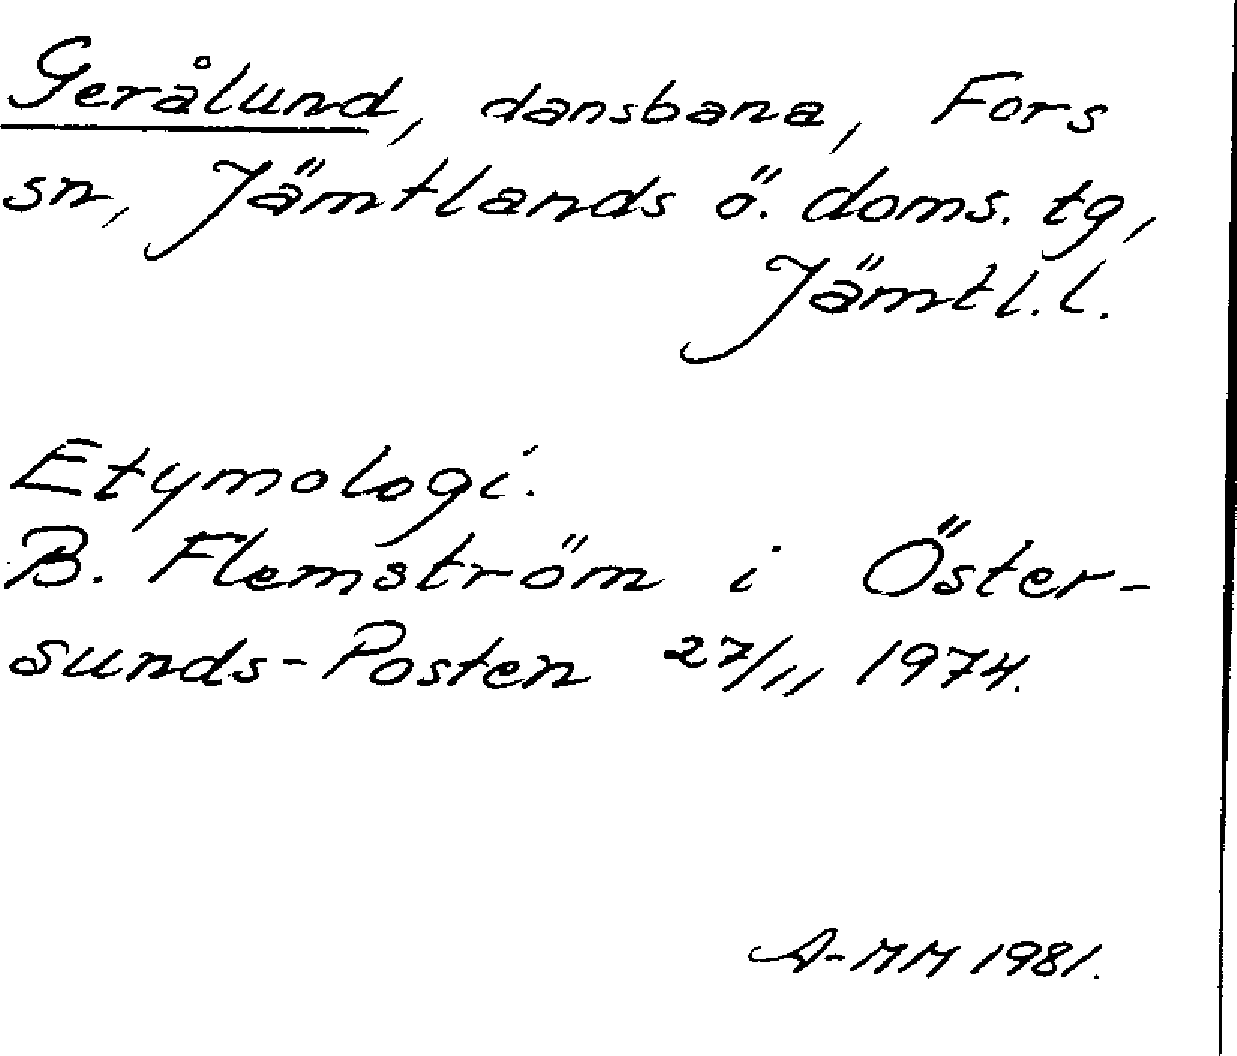 Gerålund, dansbana, Fors
sn, Jämtlands ö. doms. tg,
Jämtl. l.
Etymologi.
B. Flemström i Öster-
sunds-Posten 27/11 1974.
A-MM 1981.